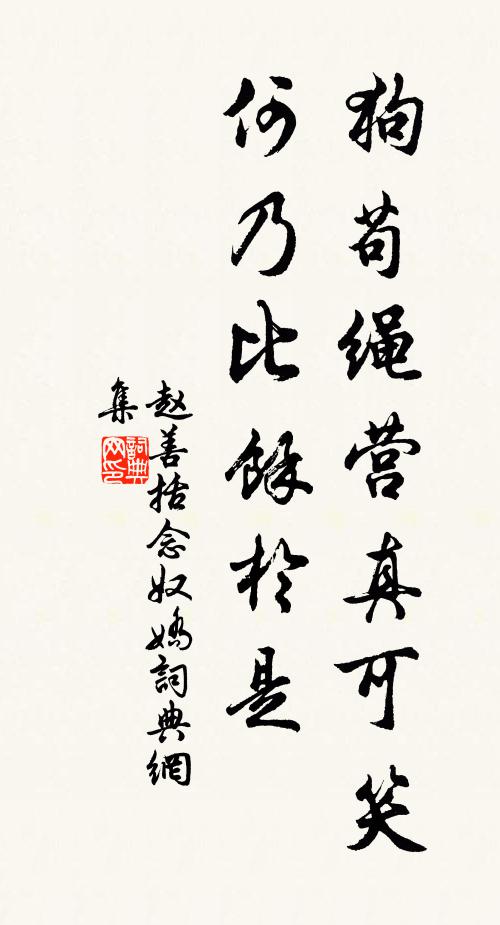 狗苟绳营真可笑
何乃比馀於是
赵善括念奴嬌詞典網
集
詞典网印